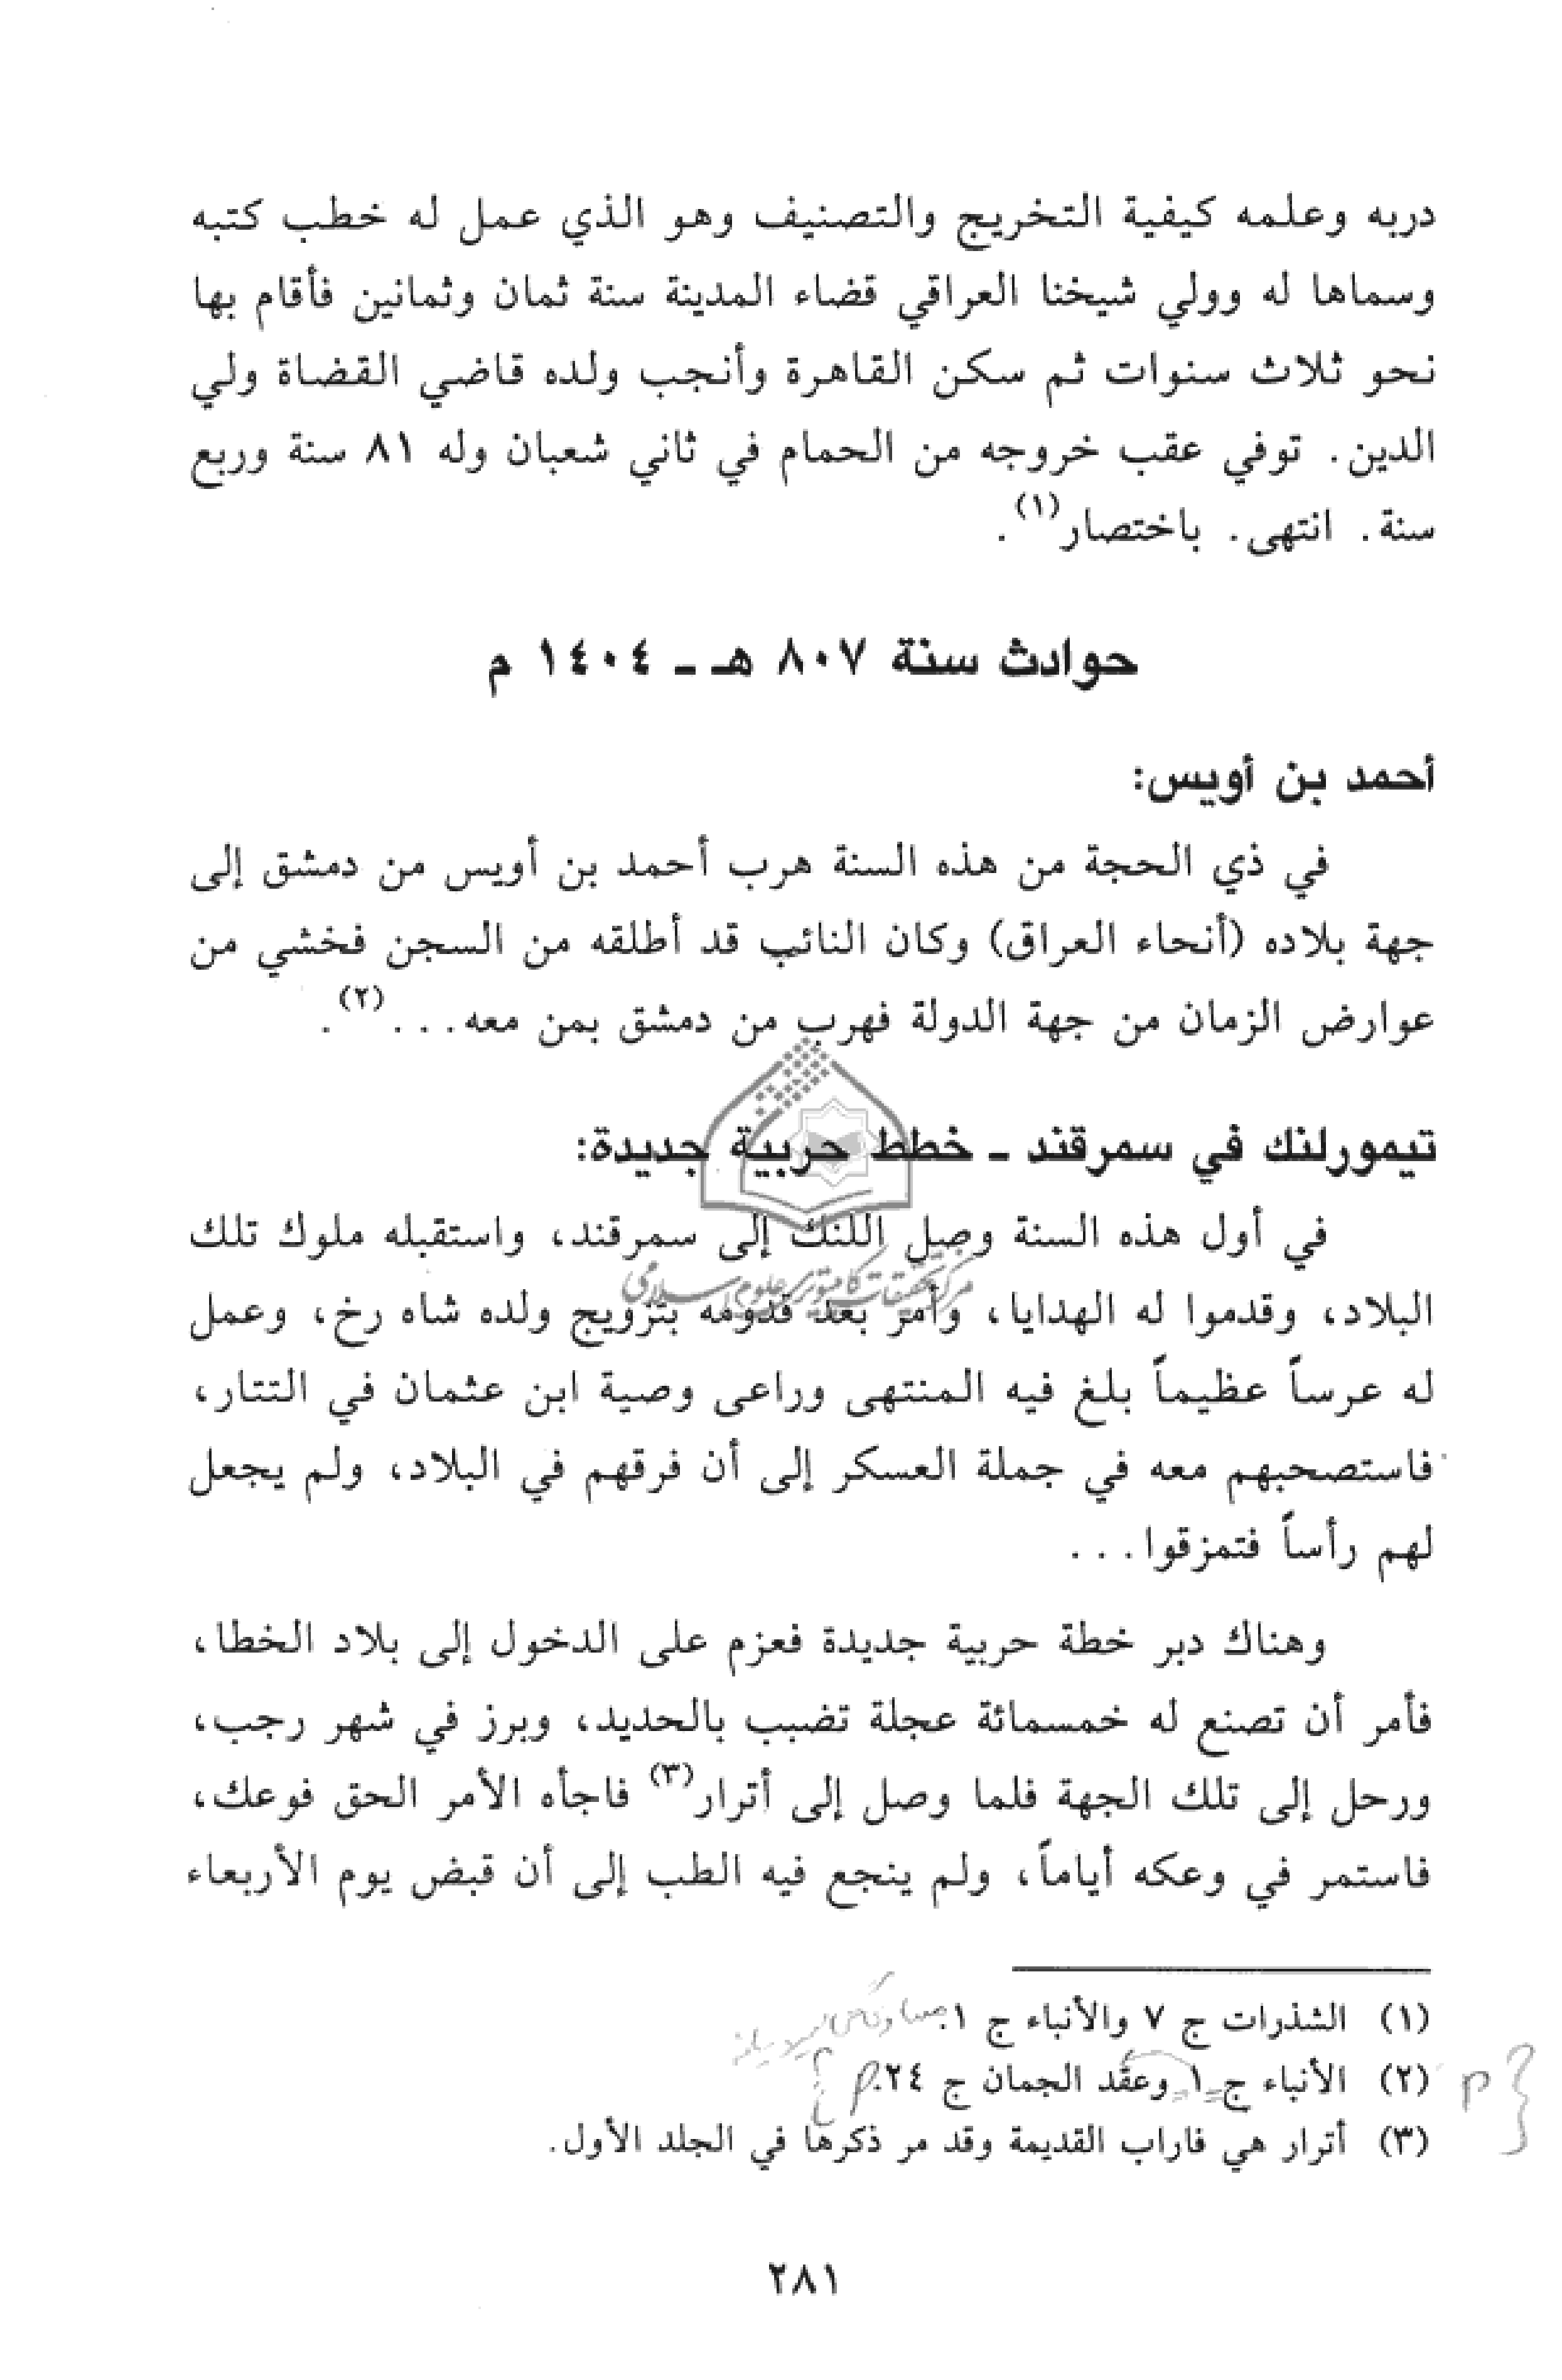 دربه وعلمه كيفية التخريج والتصنيف وهو الذي عمل له خطب كتبه
وسماها له وولي شيخنا العراقي قضاء المدينة سنة ثمان وثمانين فأقام بها
نحو ثلاث سنوات ثم سكن القاهرة وأنجب ولده قاضي القضاة ولي
الدين. توفي عقب خروجه من الحمام في ثاني شعبان وله ٨١ سنة وربع
سنة. انتهى. باختصار(١).
حوادث سنة ٨٠٧ هـ ـ ١٤٠٤ م
أحمد بن أويس:
في ذي الحجة من هذه السنة هرب أحمد بن أويس من دمشق إلى
جهة بلاده (أنحاء العراق) وكان النائب قد أطلقه من السجن فخشي من
عوارض الزمان من جهة الدولة فهرب من دمشق بمن معه...(٢).
تيمورلنك في سمرقند ـ خطط حربية جديدة:
في أول هذه السنة وصل اللنك إلى سمرقند، واستقبله ملوك تلك
مركز تحقيقات كامپيوتري علوم اسلامى
البلاد، وقدموا له الهدايا، وأمر بعد قدومه بتزويج ولده شاه رخ، وعمل
له عرساً عظيماً بلغ فيه المنتهى وراعى وصية ابن عثمان في التتار،
فاستصحبهم معه في جملة العسكر إلى أن فرقهم في البلاد، ولم يجعل
لهم رأساً فتمزقوا...
وهناك دبر خطة حربية جديدة فعزم على الدخول إلى بلاد الخطا،
فأمر أن تصنع له خمسمائة عجلة تضبب بالحديد، وبرز في شهر رجب،
ورحل إلى تلك الجهة فلما وصل إلى أترار(٣) فاجأه الأمر الحق فوعك،
فاستمر في وعكه أياماً، ولم ينجع فيه الطب إلى أن قبض يوم الأربعاء
(١) الشذرات ج ٧ والأنباء ج ١.
(٢) الأنباء ج ١ وعقد الجمان ج ٢٤.
(٣) أترار هي فاراب القديمة وقد مر ذكرها في الجلد الأول.
٢٨١